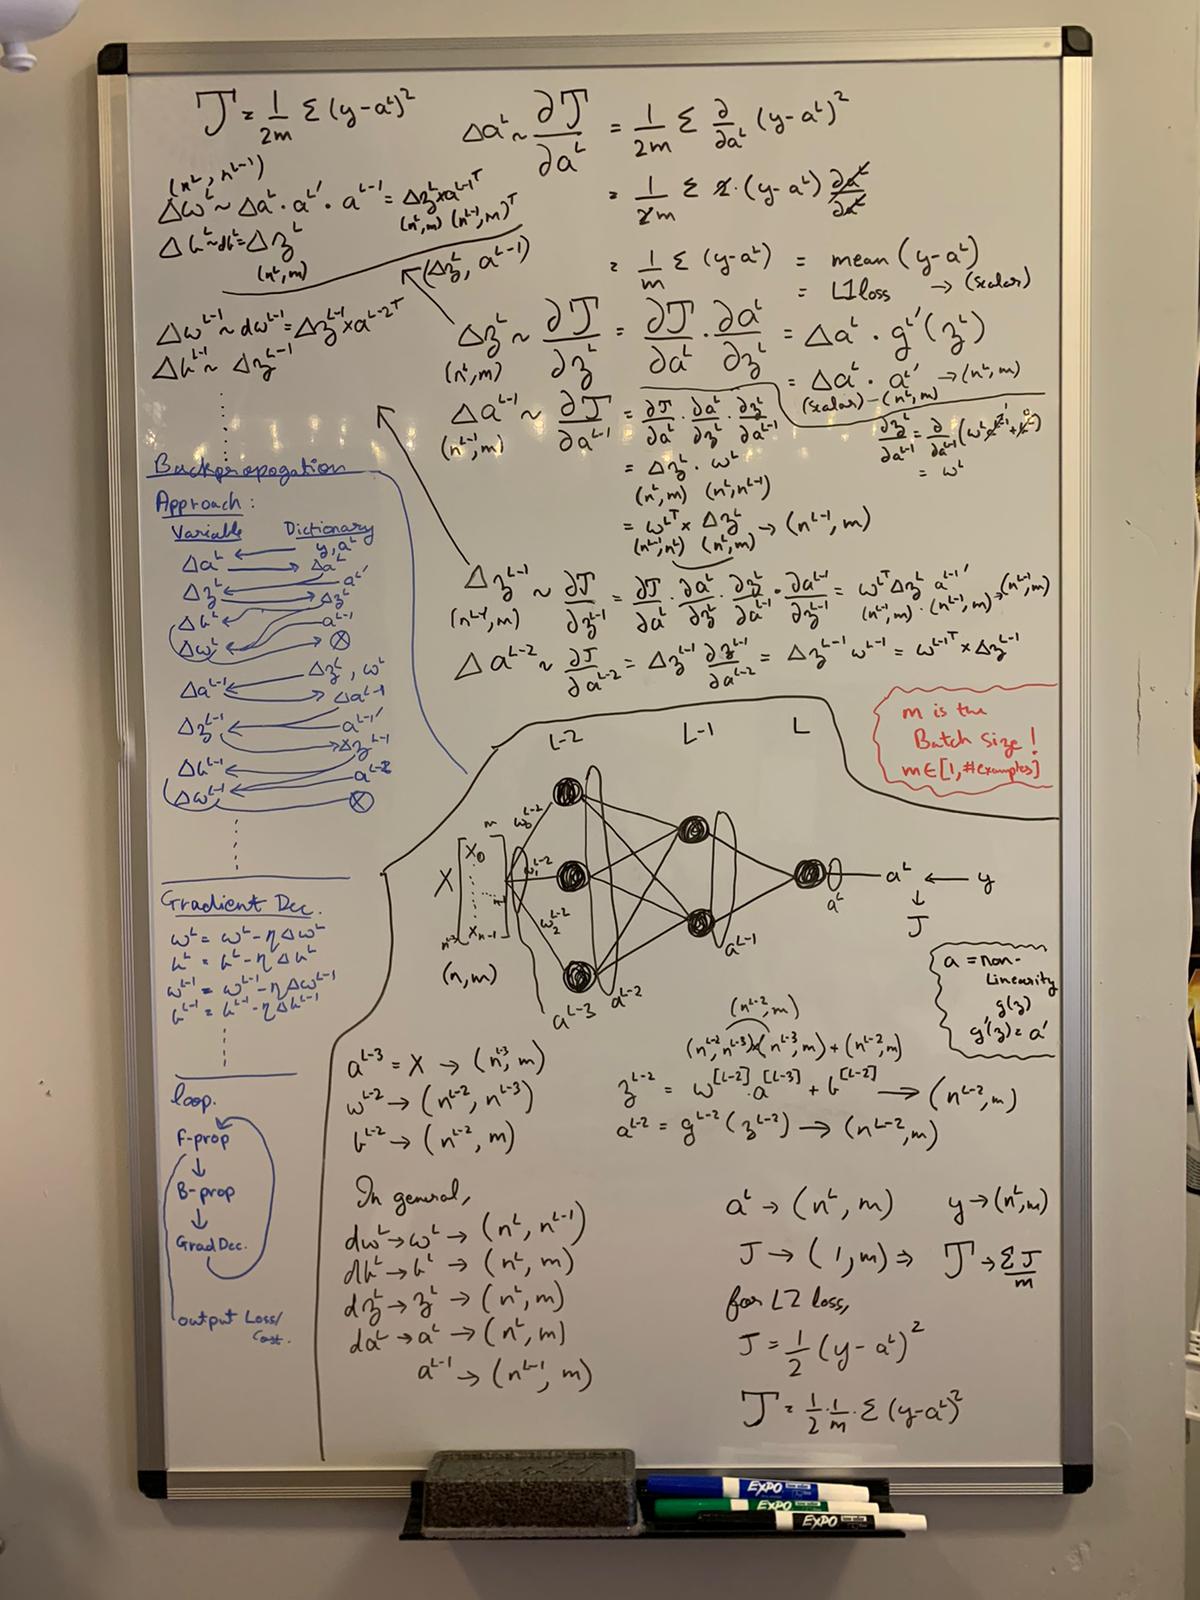 J = 1/2m Σ (y-a^L)²
(n^L, n^{L-1})
Δw^L ~ Δa^L · a^L' · a^{L-1} = Δz^L × a^{L-1 T}
(n^L, m) (n^{L-1}, m)^T
Δb^L ~ db^L = Δz^L
(n^L, m)
Δw^{L-1} ~ dw^{L-1} = Δz^{L-1} × a^{L-2 T}
Δb^{L-1} ~ Δz^{L-1}
Δa^L ~ ∂J/∂a^L = 1/2m Σ ∂/∂a^L (y-a^L)²
= 1/2m Σ 2·(y-a^L) ∂a^L/∂a^L
= 1/m Σ (y-a^L) = mean (y-a^L)
= L1 loss → (scalar)
(Δz^L, a^{L-1})
Δz^L ~ ∂J/∂z^L = ∂J/∂a^L · ∂a^L/∂z^L = Δa^L · g^L'(z^L)
(n^L, m)
= Δa^L · a^L' → (n^L, m)
(scalar) - (n^L, m)
Δa^{L-1} ~ ∂J/∂a^{L-1} = ∂J/∂a^L · ∂a^L/∂z^L · ∂z^L/∂a^{L-1}
(n^{L-1}, m)
∂z^L/∂a^{L-1} = ∂/∂a^{L-1} (w^L a^{L-1} + b^L)
= w^L
= Δz^L · w^L
(n^L, m) (n^L, n^{L-1})
= w^{L T} × Δz^L → (n^{L-1}, m)
(n^{L-1}, n^L) (n^L, m)
Δz^{L-1} ~ ∂J/∂z^{L-1} = ∂J/∂a^L · ∂a^L/∂z^L · ∂z^L/∂a^{L-1} · ∂a^{L-1}/∂z^{L-1} = w^{L T} Δz^L a^{L-1}'
(n^{L-1}, m)
(n^{L-1}, m) · (n^{L-1}, m) → (n^{L-1}, m)
Δa^{L-2} ~ ∂J/∂a^{L-2} = Δz^{L-1} ∂z^{L-1}/∂a^{L-2} = Δz^{L-1} w^{L-1} = w^{L-1 T} × Δz^{L-1}
Backpropogation
Approach:
Variable Dictionary
y, a^L
Δa^L Δa^L
a^L'
Δz^L Δz^L
Δb^L a^{L-1}
Δw^L ⊗
Δz^L, w^L
Δa^{L-1} Δa^{L-1}
Δz^{L-1} a^{L-1}'
Δz^{L-1}
Δb^{L-1} a^{L-2}
Δw^{L-1} ⊗
Gradient Dec.
w^L = w^L - ηΔw^L
b^L = b^L - ηΔb^L
w^{L-1} = w^{L-1} - ηΔw^{L-1}
b^{L-1} = b^{L-1} - ηΔb^{L-1}
loop.
F-prop
↓
B-prop
↓
Grad Dec.
output Loss/
Cost.
m is the
Batch Size!
m∈[1, #examples]
L-2 L-1 L
X
x_0
x_{n-1}
m
w_0^{L-2}
w_1^{L-2}
w_2^{L-2}
(n,m)
a^{L-3}
a^{L-2}
a^{L-1}
a^L
a^L ← y
↓
J
a = non-
Linearity
g(z)
g'(z) = a'
a^{L-3} = X → (n^{L-3}, m)
w^{L-2} → (n^{L-2}, n^{L-3})
b^{L-2} → (n^{L-2}, m)
(n^{L-2}, m)
(n^{L-2}, n^{L-3}) × (n^{L-3}, m) + (n^{L-2}, m)
z^{L-2} = w^{[L-2]} · a^{[L-3]} + b^{[L-2]} → (n^{L-2}, m)
a^{L-2} = g^{L-2} (z^{L-2}) → (n^{L-2}, m)
In general,
dw^L → w^L → (n^L, n^{L-1})
db^L → b^L → (n^L, m)
dz^L → z^L → (n^L, m)
da^L → a^L → (n^L, m)
a^{L-1} → (n^{L-1}, m)
a^L → (n^L, m) y → (n^L, m)
J → (1, m) ⇒ J → ΣJ/m
for L2 loss,
J = 1/2 (y-a^L)²
J = 1/2 · 1/m · Σ (y-a^L)²
EXPO
EXPO
EXPO